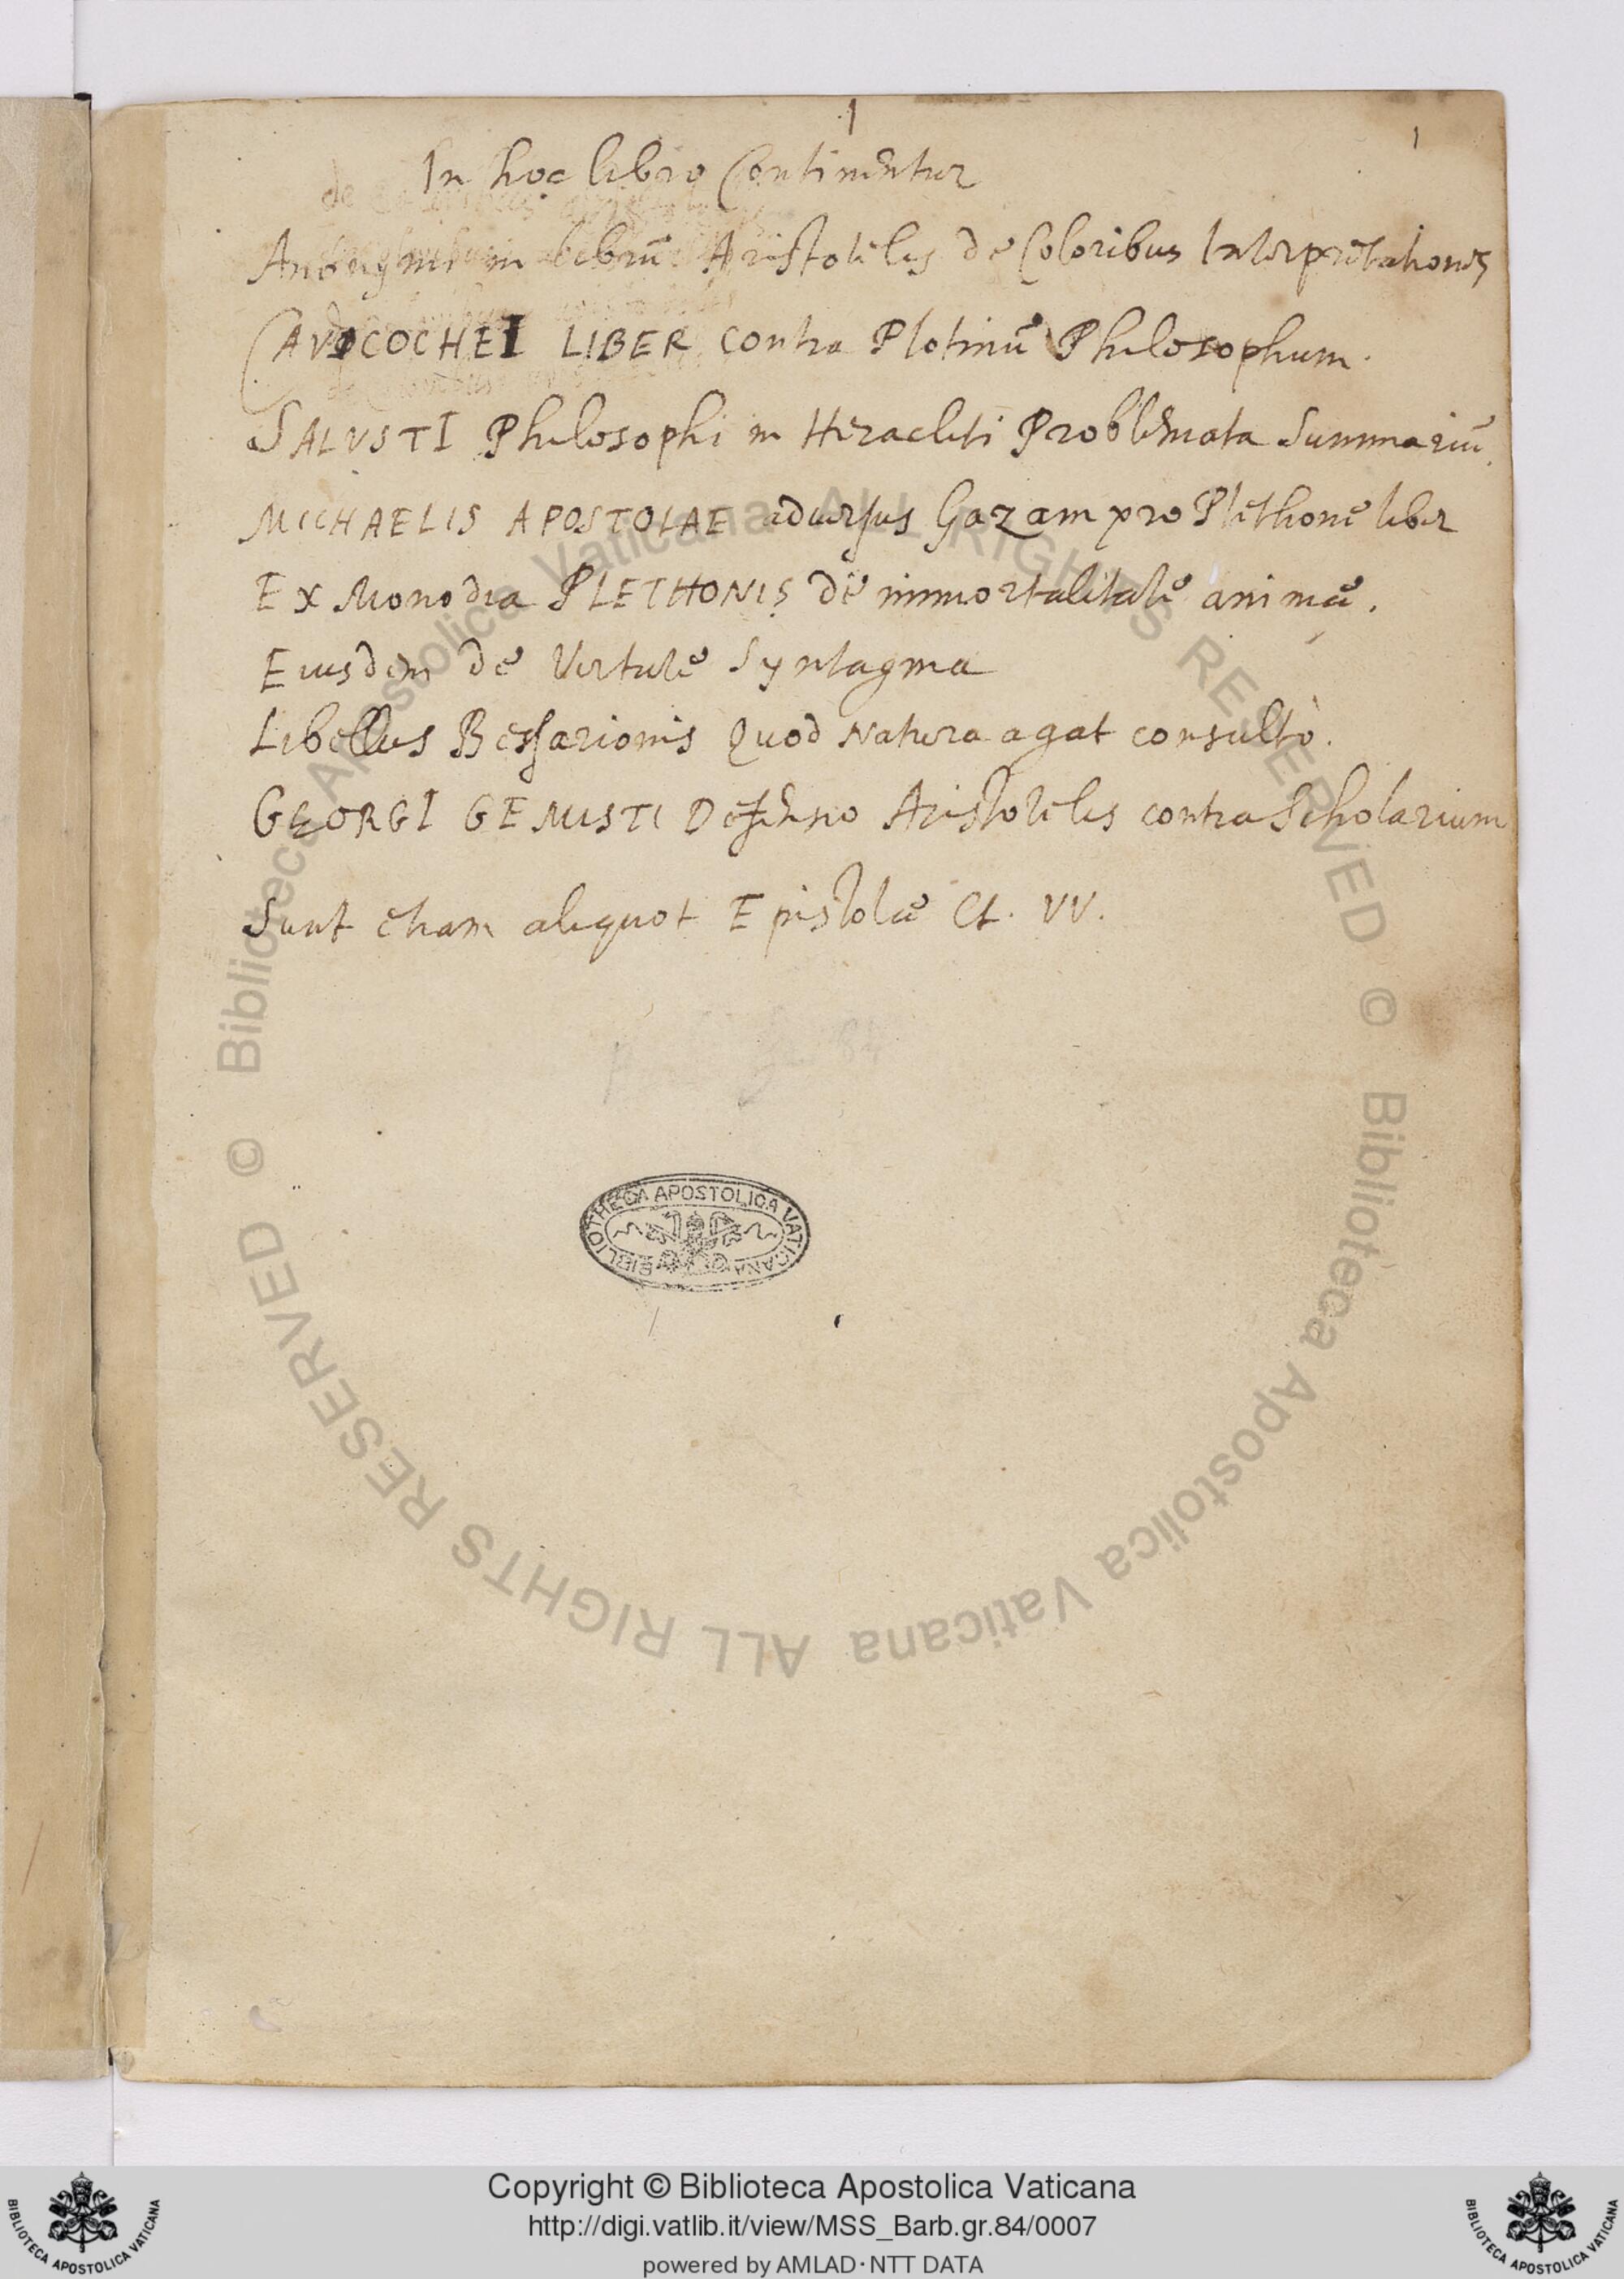 1
1
In hoc libro Continentur
Anonymi in librũ Aristotelis de Coloribus Interpretationes
CAVOCOCHEI LIBER contra Plotinũ Philosophum.
SALUSTI Philosophi in Heracliti Problemata Summariũ.
MICHAELIS APOSTOLAE aduersus Gazam pro Plethone liber
Ex Monodia PLETHONIS de immortalitate animæ.
Eiusdem de Virtute Syntagma
Libellus Bessarionis Quod Natura agat consultò.
GEORGI GEMISTI Defensio Aristotelis contra Scholarium
Sunt etiam aliquot Epistolæ Cl. VV.
BIBLIOTHECA APOSTOLICA VATICANA
© Biblioteca Apostolica Vaticana ALL RIGHTS RESERVED
© Biblioteca Apostolica Vaticana ALL RIGHTS RESERVED
Copyright © Biblioteca Apostolica Vaticana
http://digi.vatlib.it/view/MSS_Barb.gr.84/0007
powered by AMLAD · NTT DATA
BIBLIOTECA APOSTOLICA VATICANA
BIBLIOTECA APOSTOLICA VATICANA